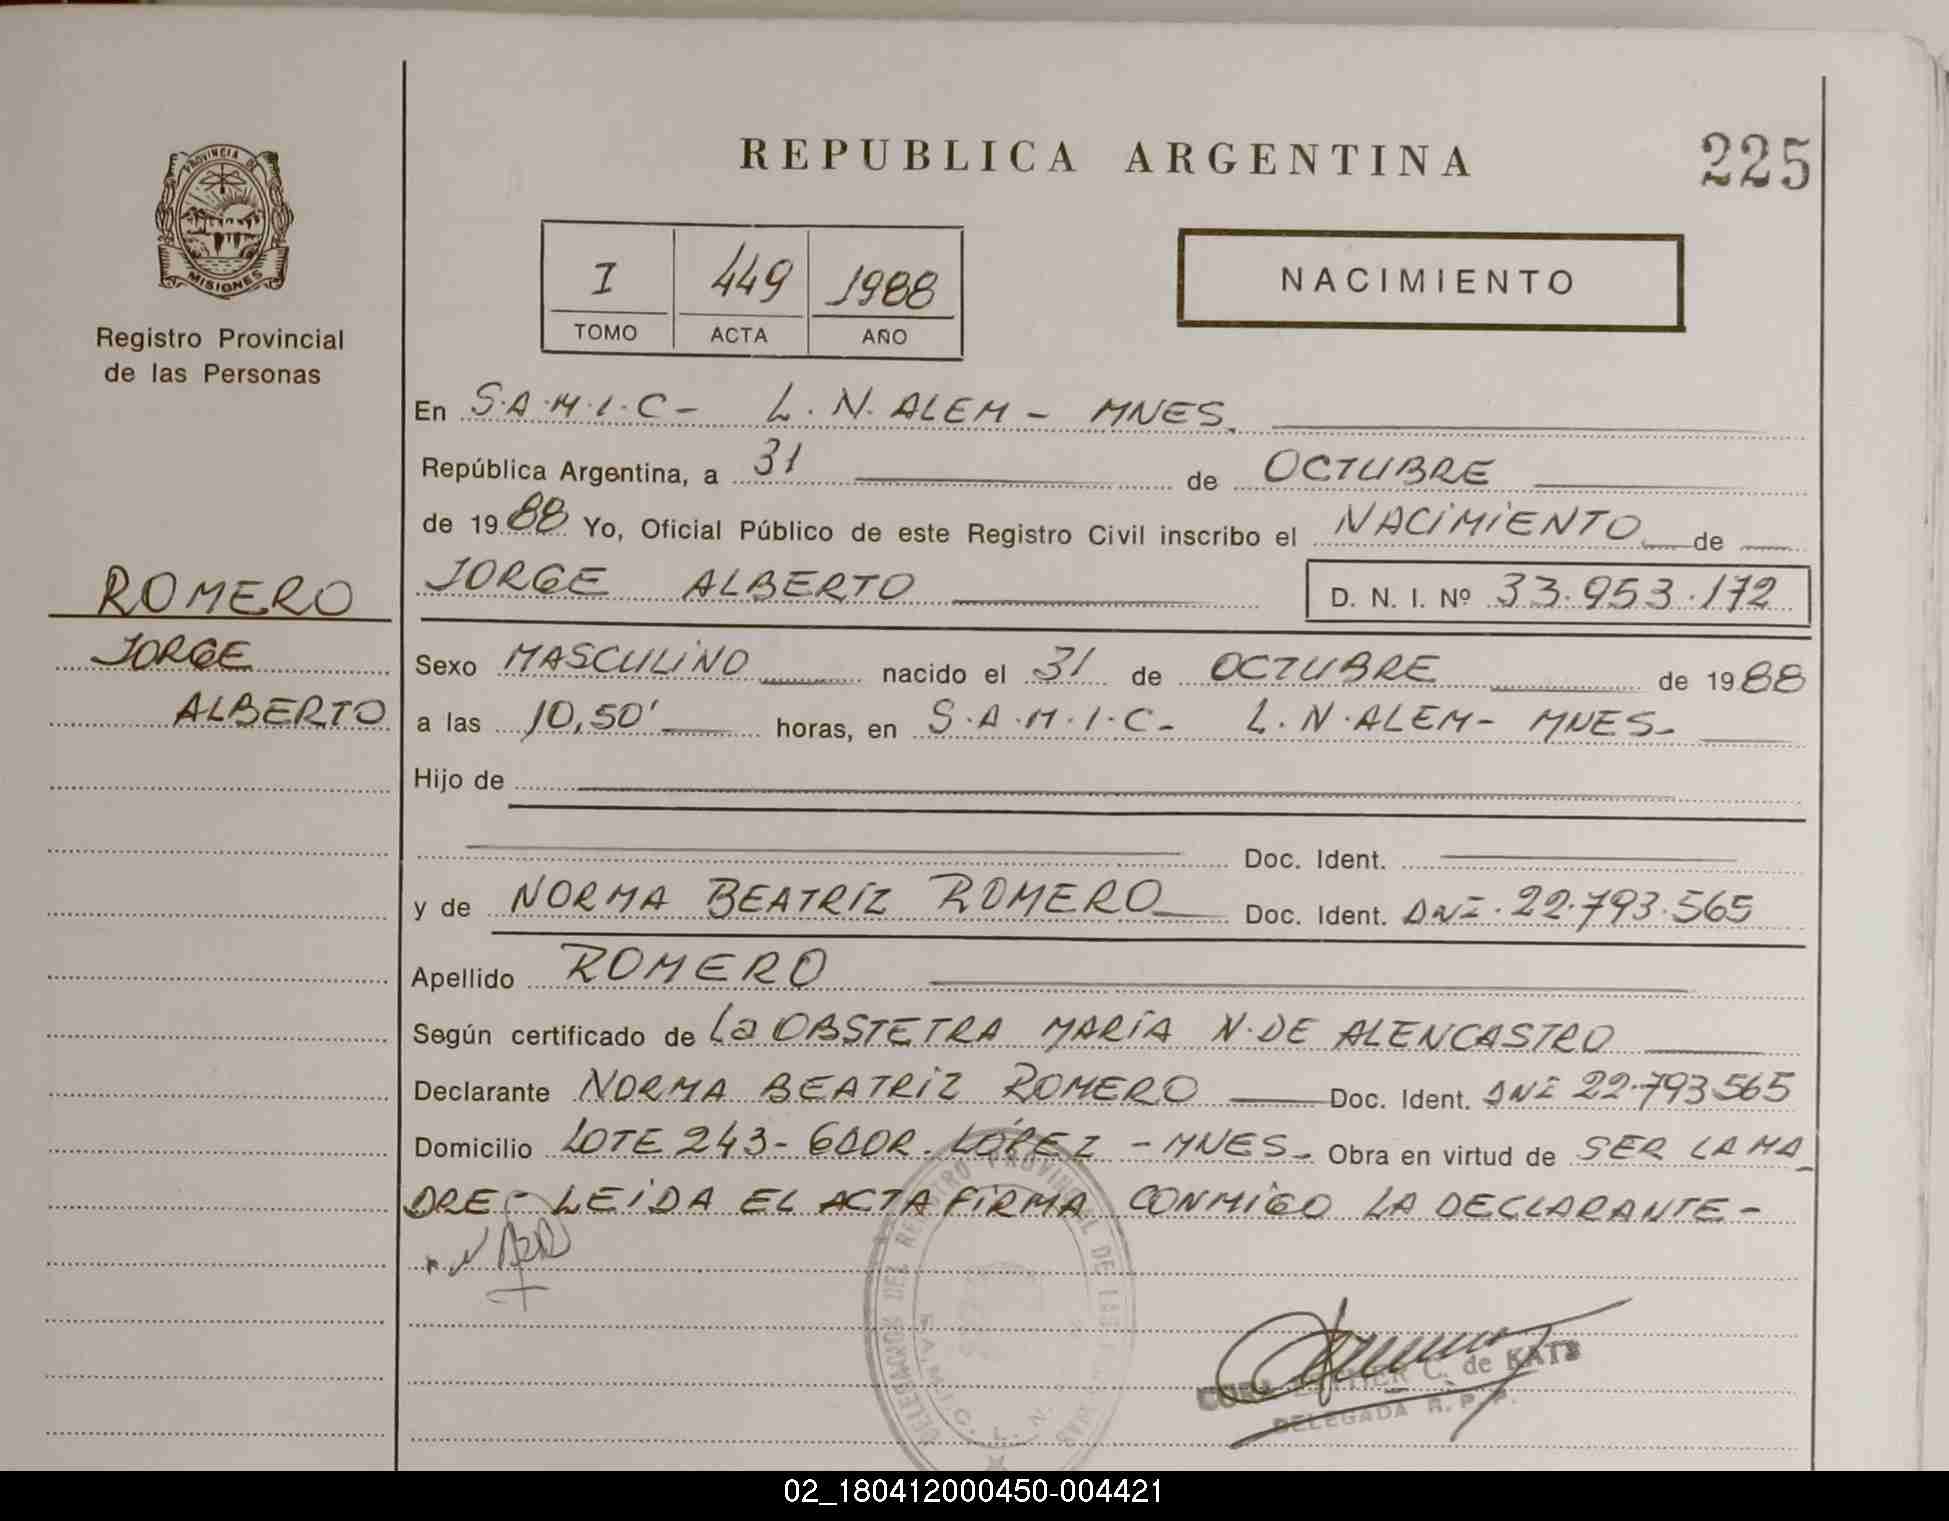 REPUBLICA ARGENTINA
225
PROVINCIA DE
MISIONES
Registro Provincial
de las Personas
I 449 1988
TOMO ACTA AÑO
NACIMIENTO
En S.A.M.I.C- L.N.ALEM - MNES.
República Argentina, a 31 de OCTUBRE
de 1988 Yo, Oficial Público de este Registro Civil inscribo el NACIMIENTO de
JORGE ALBERTO D. N. I. Nº 33.953.172
ROMERO
JORGE
ALBERTO
Sexo MASCULINO nacido el 31 de OCTUBRE de 1988
a las 10,50' horas, en S.A.M.I.C- L.N.ALEM- MNES-
Hijo de
Doc. Ident.
y de NORMA BEATRIZ ROMERO Doc. Ident. DNI.22.793.565
Apellido ROMERO
Según certificado de La OBSTETRA MARÍA N.DE ALENCASTRO
Declarante NORMA BEATRIZ ROMERO Doc. Ident. DNI 22.793.565
Domicilio LOTE 243- GDOR. LÓPEZ - MNES- Obra en virtud de SER LA MA-
DRE- LEIDA EL ACTA FIRMA CONMIGO LA DECLARANTE-
DEL REGISTRO PROVINCIAL DE LAS
S.A.M.I.C. L. N.
C. de KATZ
DELEGADA R. P. P.
02_180412000450-004421